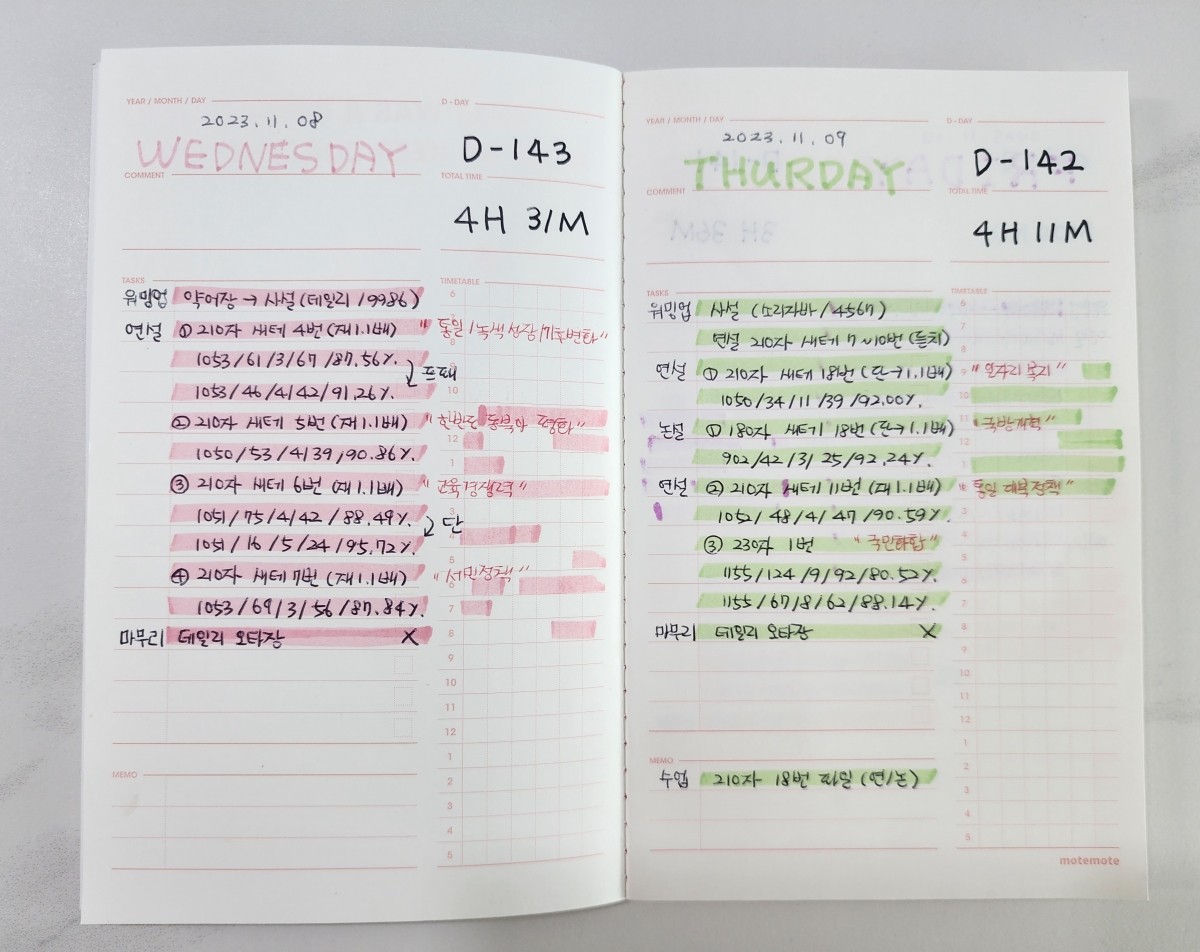 YEAR / MONTH / DAY
2023.11.08
WEDNESDAY
D-DAY
D-143
COMMENT
TOTAL TIME
4H 31M
TASKS
TIMETABLE
워밍업 약어장 → 사설 (데일리 / 9986)
연설 ① 210자 새테 4번 (재1.1배) "통일/녹색성장/기후변화"
1053/61/3/67/87.56%.
프패
1053/46/4/42/91.26%.
② 210자 새테 5번 (재1.1배) "한반도 동북아 평화"
1050/53/4/39/90.86%.
③ 210자 새테 6번 (재1.1배) "교육경쟁력"
1051/75/4/42/88.49%.
단
1051/16/5/24/95.72%.
④ 210자 새테 7번 (재1.1배) "서민정책"
1053/69/3/56/87.84%.
마무리 데일리 오타장 X
6
7
8
9
10
11
12
1
2
3
4
5
6
7
8
9
10
11
12
1
2
3
4
5
MEMO
YEAR / MONTH / DAY
2023.11.09
THURDAY
D-DAY
D-142
COMMENT
TOTAL TIME
4H 11M
TASKS
TIMETABLE
워밍업 사설 (소리자바 / 4567)
연설 210자 새테 7~10번 (듣치)
연설 ① 210자 새테 18번 (단→1.1배) "일자리 복지"
1050/34/11/39/92.00%.
논설 ① 180자 새테 18번 (단→1.1배) "국방개혁"
902/42/3/25/92.24%.
연설 ② 210자 새테 11번 (재1.1배) "통일 대북정책"
1052/48/4/47/90.59%.
③ 230자 1번 "국민화합"
1155/124/9/92/80.52%.
1155/67/8/62/88.14%.
마무리 데일리 오타장 X
6
7
8
9
10
11
12
1
2
3
4
5
6
7
8
9
10
11
12
1
2
3
4
5
MEMO
수업 210자 18번 파일 (연/논)
motemote